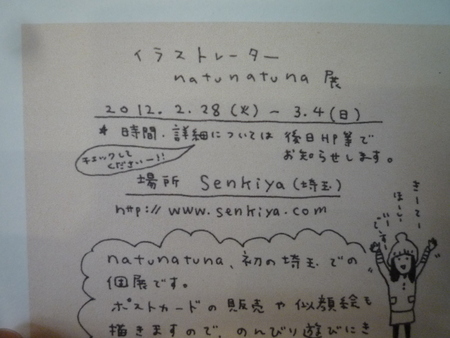 イラストレーター
natunatuna 展
2012.2.28(火) ー 3.4(日)
* 時間・詳細については 後日HP等で
お知らせします。
チェックして
くださいー!!
場所 Senkiya(埼玉)
http://www.senkiya.com
natunatuna、初の埼玉での
個展です。
ポストカードの販売や似顔絵も
描きますので、のんびり遊びにき